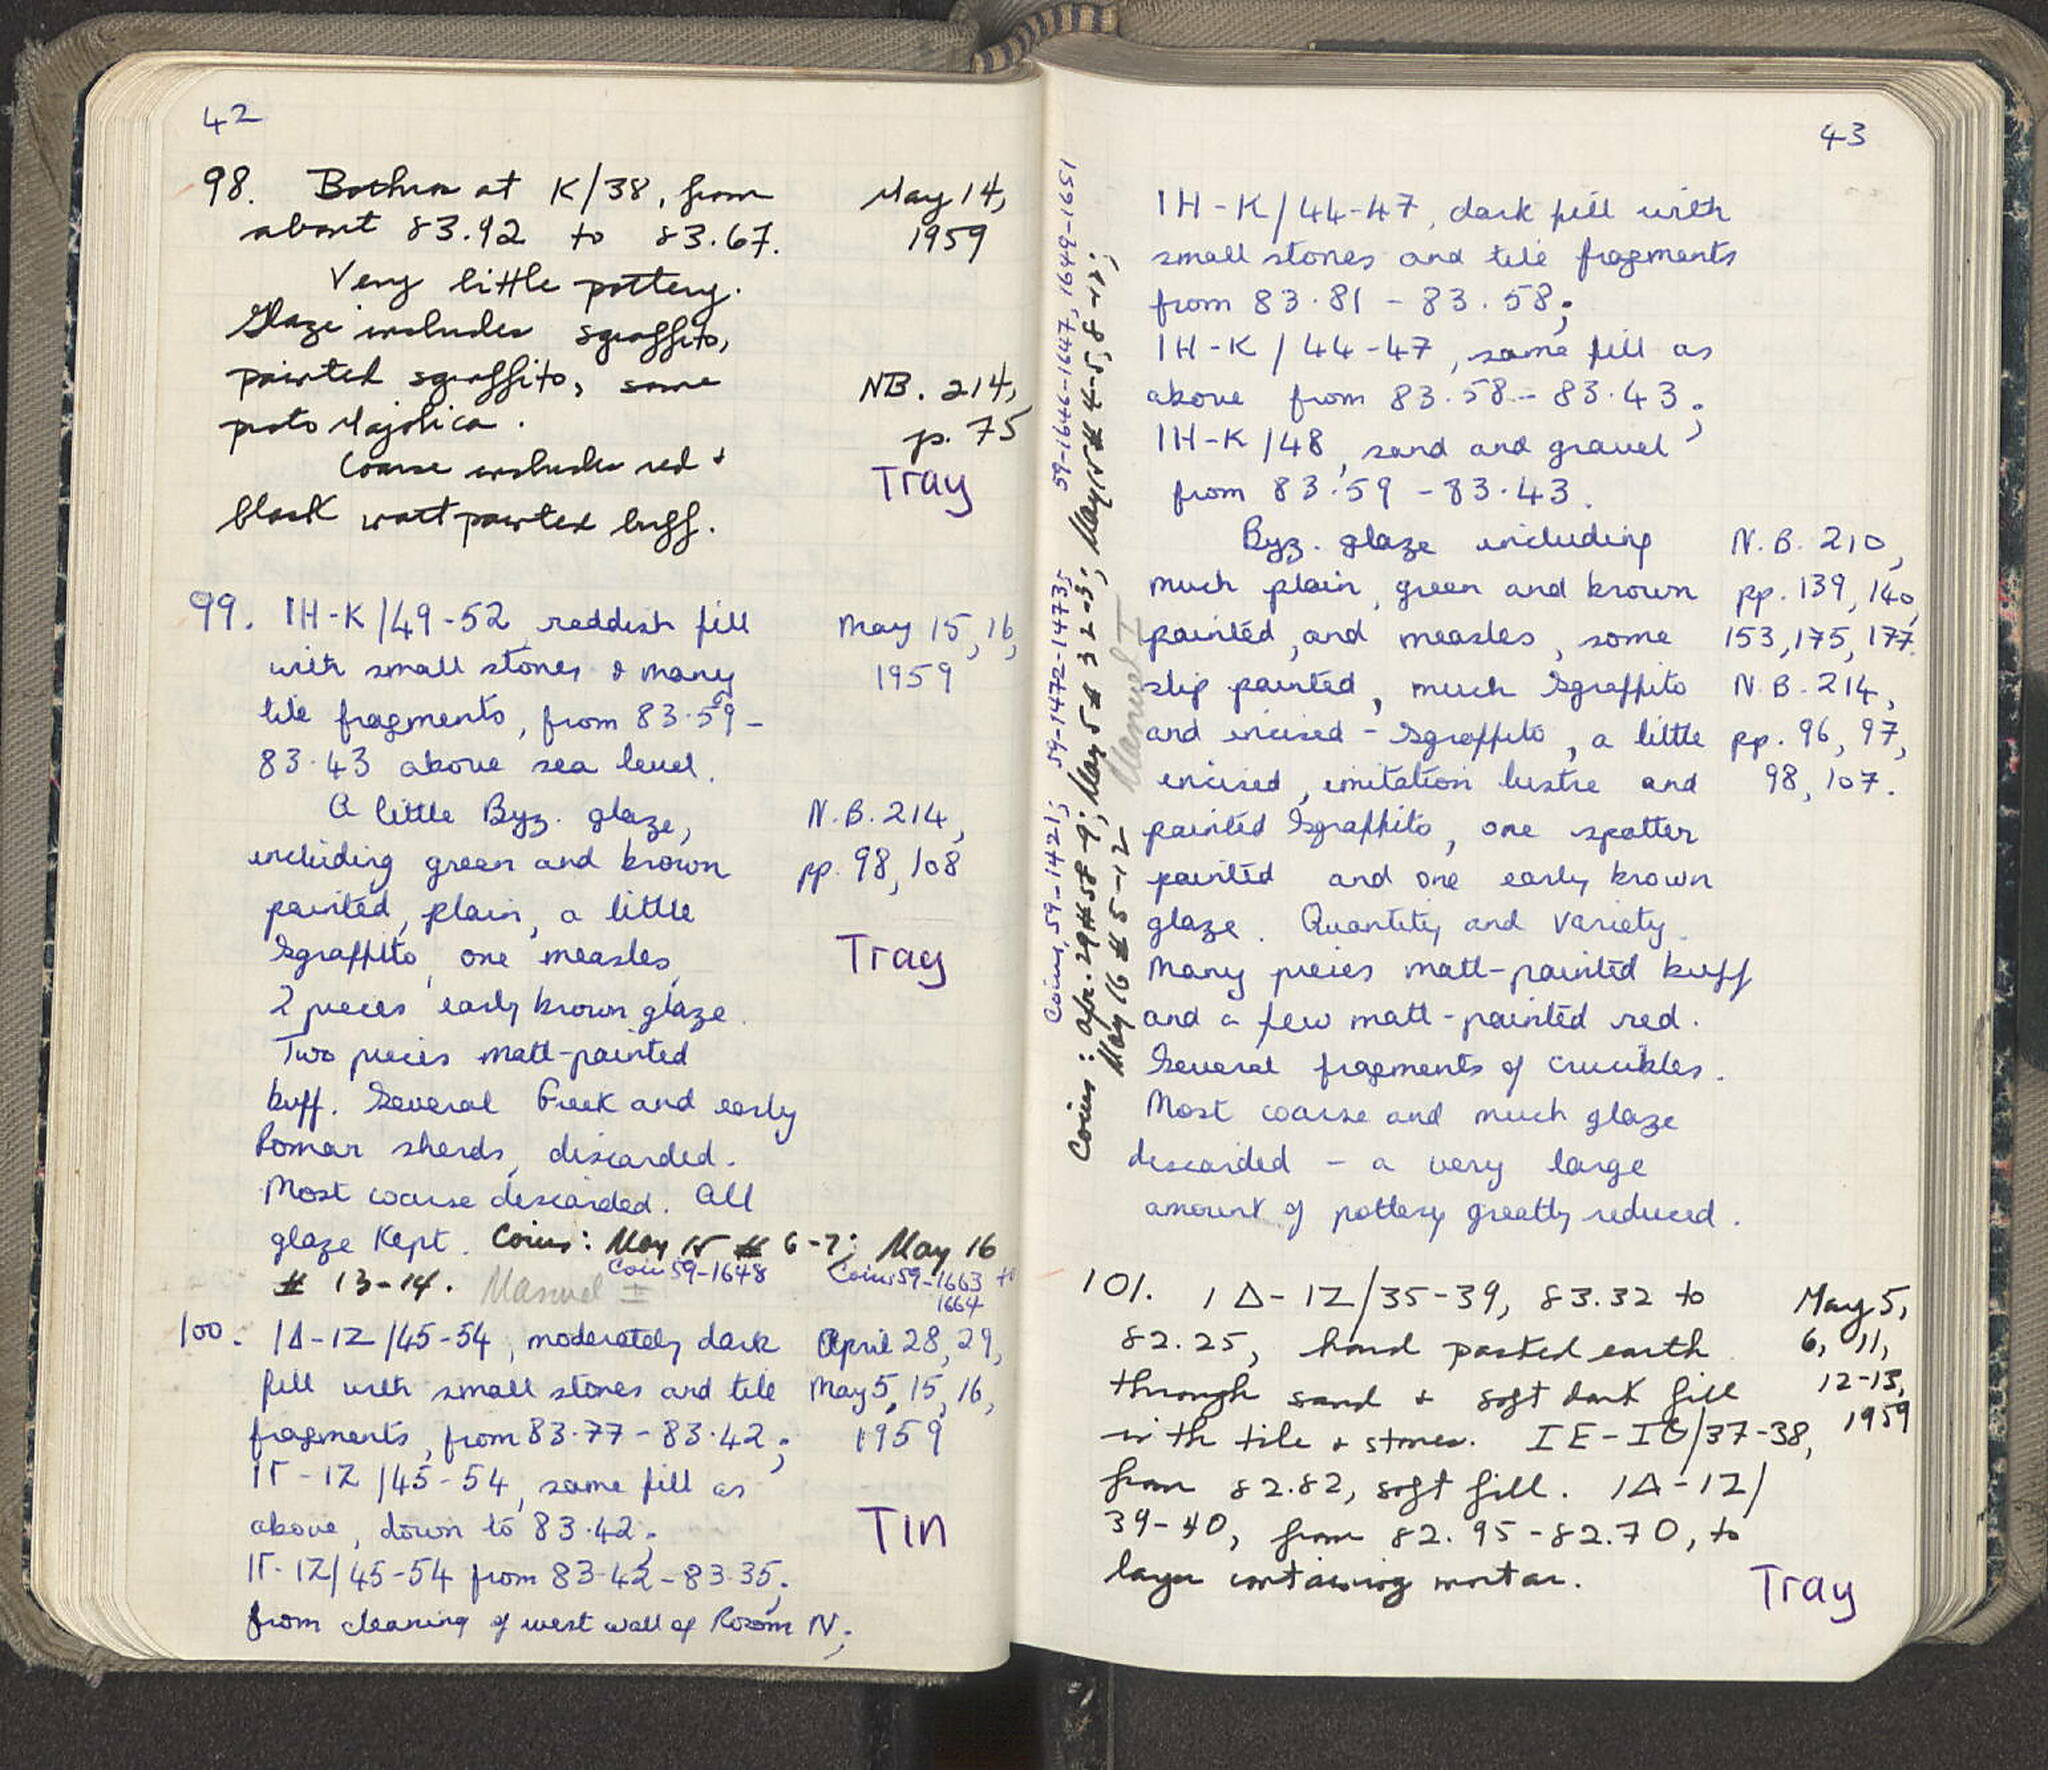 42
98. Bothros at K/38, from
about 83.92 to 83.67.
May 14,
1959
Very little pottery.
Glaze includes sgraffito,
painted sgraffito, some
proto Majolica.
NB. 214,
p. 75
Coarse includes red +
black matt painted buff.
Tray
99. IH-K/49-52, reddish fill
with small stones & many
tile fragments, from 83.59-
83.43 above sea level.
May 15, 16,
1959
A little Byz. glaze,
including green and brown
painted, plain, a little
Sgraffito, one measles,
2 pieces early brown glaze.
Two pieces matt-painted
buff. Several Greek and early
Roman sherds, discarded.
Most coarse discarded. All
glaze kept. Coins: May 15 # 6-7; May 16
# 13-14. Manuel I
N.B. 214,
pp. 98, 108
Tray
Coin 59-1648
Coins 59-1663 to
1664
100. IΔ-IZ/45-54, moderately dark
fill with small stones and tile
fragments, from 83.77-83.42;
IΓ-IZ/45-54, same fill as
above, down to 83.42;
IΓ-IZ/45-54 from 83.42-83.35;
from cleaning of west wall of Room N;
April 28, 29,
May 5, 15, 16,
1959
Tin
43
Coins, 59-1421; 59-1472-1473; 59-1646-1647, 1649-1651
Coins: Apr. 29 # 58-9; May 5 # 32-3; May 15 # 4-5, 8-11;
May 16 # 5-12
Manuel I
IH-K/44-47, dark fill with
small stones and tile fragments
from 83.81-83.58;
IH-K/44-47, same fill as
above from 83.58-83.43;
IH-K/48, sand and gravel
from 83.59-83.43.
Byz. glaze including
much plain, green and brown
painted, and measles, some
slip painted, much Sgraffito
and incised-Sgraffito, a little
incised, imitation lustre and
painted Sgraffito, one spatter
painted and one early brown
glaze. Quantity and variety.
Many pieces matt-painted buff
and a few matt-painted red.
Several fragments of crucibles.
Most coarse and much glaze
discarded - a very large
amount of pottery greatly reduced.
N.B. 210,
pp. 139, 140,
153, 175, 177.
N.B. 214,
pp. 96, 97,
98, 107.
101. IΔ-IZ/35-39, 83.32 to
82.25, hard packed earth
through sand + soft dark fill
with tile + stones. IE-IG/37-38,
from 82.82, soft fill. IΔ-IZ/
39-40, from 82.95-82.70, to
layer containing mortar.
May 5,
6, 11,
12-13,
1959
Tray